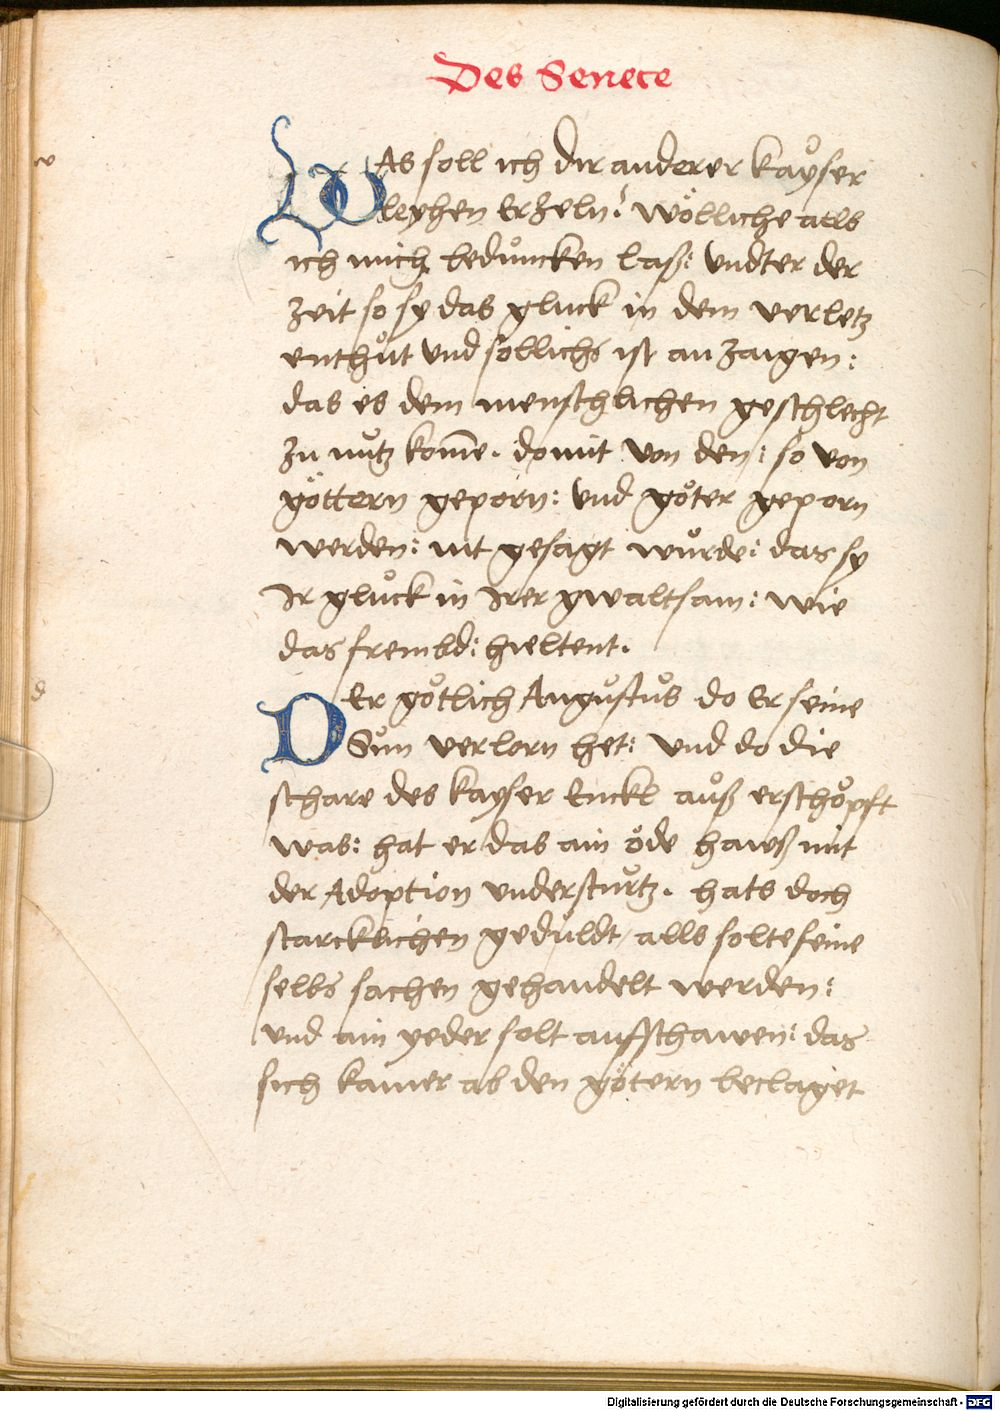 Des Senece
WAs soll ich dir anderer kaẙser
leyhen Erzeln? wölliche alls
ich mich bedůncken laß: vndter der
Zeit so sy das gluck in dem verletz
enthůt vnd sollichs ist an Zaigen:
das es dem menschlichen geschlecht
Zu nůtz kom̄e. domit von den: so von
göttern geporn: vnd gȯter geporn
werden: nit gesagt wůrde: das sy
Ir glůck in Irer gwaltsam: wie
das frembd: hieltent.
DEr gȯtlich Augůstůs do Er seine
Sůn verlorn het: vnd do die
schare des kayser Enckl aůß erschȯpft
was: hat er das ain ȯde hawß mit
der Adoption vnderstůrtz. hats doch
starcklichen gedůldt/ alls solte seine
selbs sachen gehandelt werden:
vnd ain yeder solt aufschawen: das
sich kainer ab den gȯtern beclaget
w
d
Digitalisierung gefördert durch die Deutsche Forschungsgemeinschaft - DFG